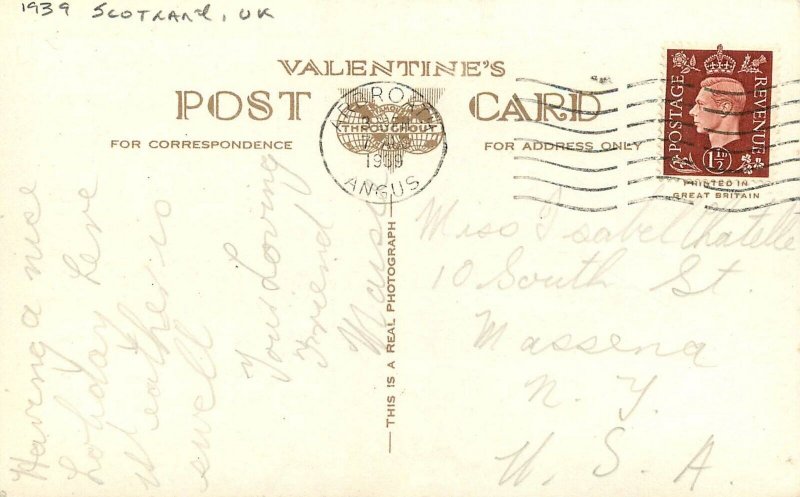 1939 SCOTLAND, UK
VALENTINE'S
POST CARD
FOR CORRESPONDENCE
FOR ADDRESS ONLY
ARBROATH
1939
ANGUS
THROUGHOUT
POSTAGE
REVENUE
1½D
PRINTED IN
GREAT BRITAIN
THIS IS A REAL PHOTOGRAPH
Having a nice
holiday here
Weather is
swell
Your Loving
Friend
Miss Isabel
10 South St.
Massena
N. Y.
U. S. A.